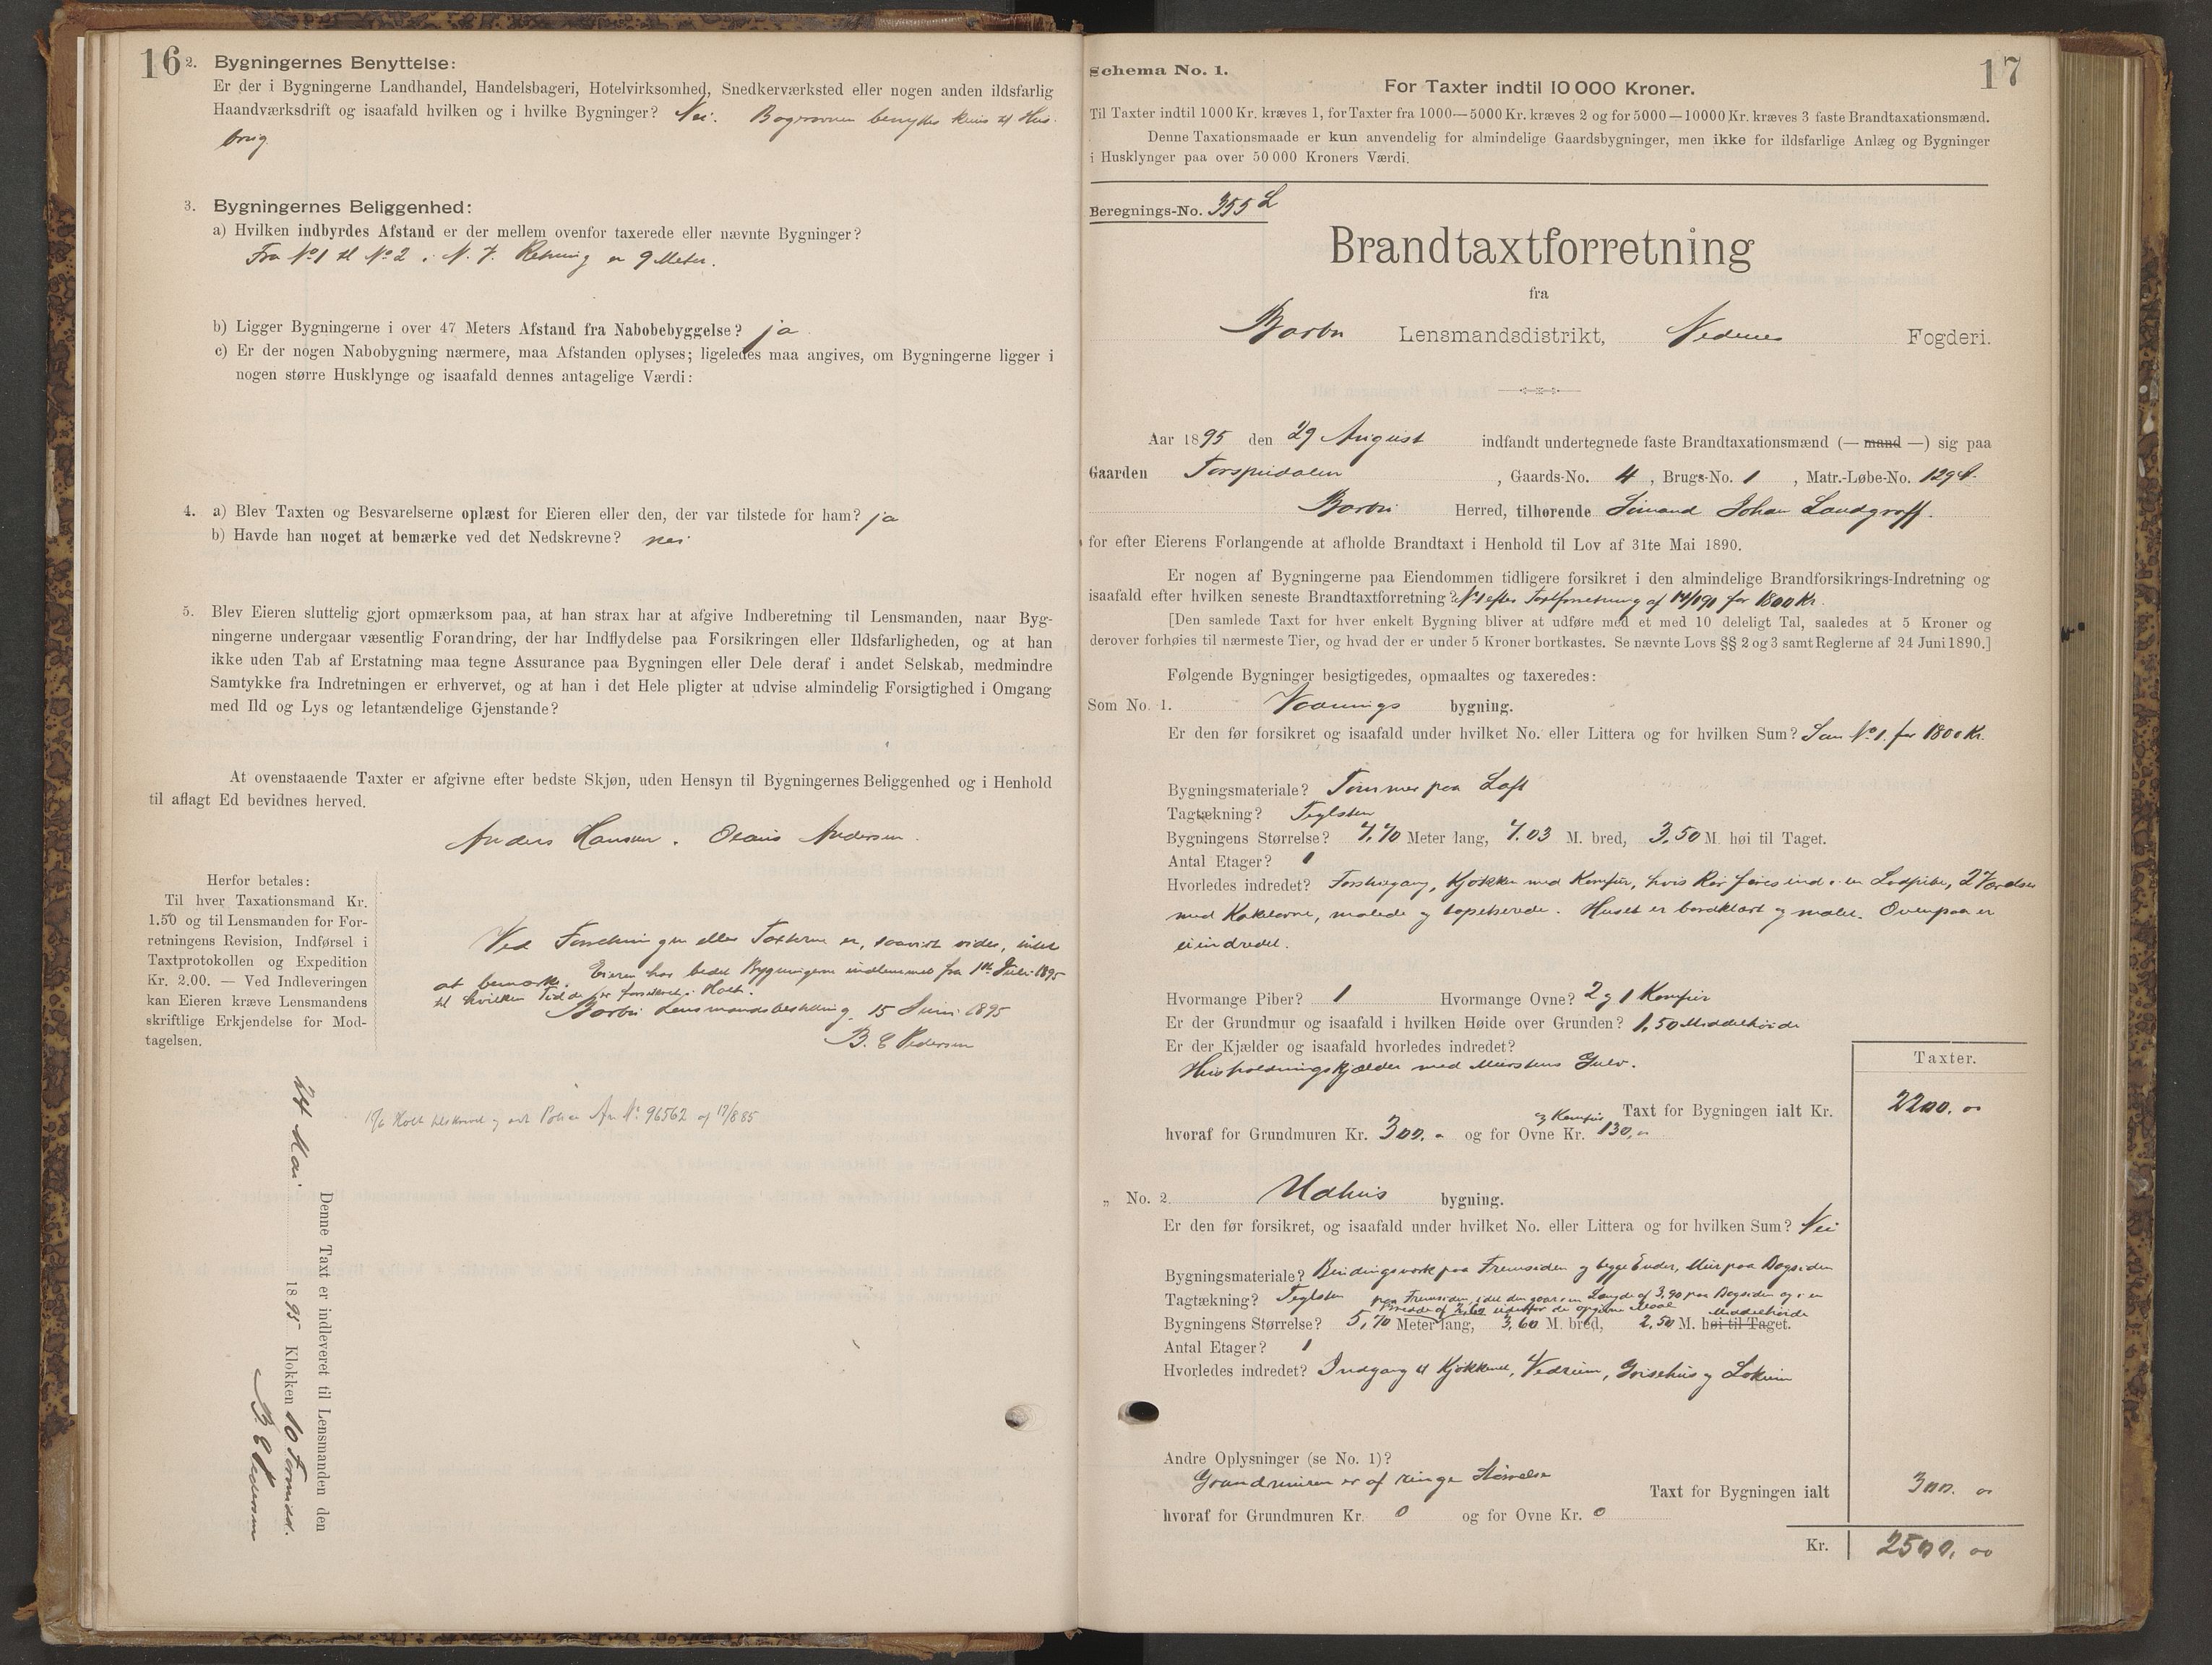 16
2. Bygningernes Benyttelse:
Er der i Bygningerne Landhandel, Handelsbageri, Hotelvirksomhed, Snedkerværksted eller nogen anden ildsfarlig
Haandværksdrift og isaafald hvilken og i hvilke Bygninger? Nei. Bagerovnen benyttes kuns til Hus-
brug
3. Bygningernes Beliggenhed:
a) Hvilken indbyrdes Afstand er der mellem ovenfor taxerede eller nævnte Bygninger?
Fra No 1 til No 2 i N. V. Retning er 9 Meter.
b) Ligger Bygningerne i over 47 Meters Afstand fra Nabobebyggelse? ja
c) Er der nogen Nabobygning nærmere, maa Afstanden oplyses; ligeledes maa angives, om Bygningerne ligger i
nogen større Husklynge og isaafald dennes antagelige Værdi:
4. a) Blev Taxten og Besvarelserne oplæst for Eieren eller den, der var tilstede for ham? ja
b) Havde han noget at bemærke ved det Nedskrevne? nei
5. Blev Eieren sluttelig gjort opmærksom paa, at han strax har at afgive Indberetning til Lensmanden, naar Byg-
ningerne undergaar væsentlig Forandring, der har Indflydelse paa Forsikringen eller Ildsfarligheden, og at han
ikke uden Tab af Erstatning maa tegne Assurance paa Bygningen eller Dele deraf i andet Selskab, medmindre
Samtykke fra Indretningen er erhvervet, og at han i det Hele pligter at udvise almindelig Forsigtighed i Omgang
med Ild og Lys og letantændelige Gjenstande?
At ovenstaaende Taxter er afgivne efter bedste Skjøn, uden Hensyn til Bygningernes Beliggenhed og i Henhold
til aflagt Ed bevidnes herved.
Anders Hansen. Olaus Andersen.
Herfor betales:
Til hver Taxationsmand Kr.
1.50 og til Lensmanden for For-
retningens Revision, Indførsel i
Taxtprotokollen og Expedition
Kr. 2.00. — Ved Indleveringen
kan Eieren kræve Lensmandens
skriftlige Erkjendelse for Mod-
tagelsen.
Ved Forretningen eller Taxterne er, saavidt vides, intet
at bemærke. Eieren har bedet Bygningerne indlemmet fra 1ste Juli 1895
til hvilken Tid de er forsikret i Holt.
Barbu Lensmandsbestilling, 15 Juni 1895
B. E Pedersen
Holt tilskrevet og Police No 96562 af 17/8 85
Denne Taxt er indleveret til Lensmanden den
24 Mai 1895 Klokken 10 Formid.
B. E Pedersen
17
Schema No. 1.
For Taxter indtil 10 000 Kroner.
Til Taxter indtil 1000 Kr. kræves 1, for Taxter fra 1000—5000 Kr. kræves 2 og for 5000—10000 Kr. kræves 3 faste Brandtaxationsmænd.
Denne Taxationsmaade er kun anvendelig for almindelige Gaardsbygninger, men ikke for ildsfarlige Anlæg og Bygninger
i Husklynger paa over 50 000 Kroners Værdi.
Beregnings-No. 355 L
Brandtaxtforretning
fra
Barbu Lensmandsdistrikt, Nedenes Fogderi.
Aar 1895 den 29 August indfandt undertegnede faste Brandtaxationsmænd (— mand —) sig paa
Gaarden Torspudalen, Gaards-No. 4, Brugs-No. 1, Matr.-Løbe-No. 129
Barbu Herred, tilhørende Sømand Johan Landgraff.
for efter Eierens Forlangende at afholde Brandtaxt i Henhold til Lov af 31te Mai 1890.
Er nogen af Bygningerne paa Eiendommen tidligere forsikret i den almindelige Brandforsikrings-Indretning og
isaafald efter hvilken seneste Brandtaxtforretning? No 1 efter Taxtforretning af for 1800 Kr.
[Den samlede Taxt for hver enkelt Bygning bliver at udføre med et med 10 deleligt Tal, saaledes at 5 Kroner og
derover forhøies til nærmeste Tier, og hvad der er under 5 Kroner bortkastes. Se nævnte Lovs §§ 2 og 3 samt Reglerne af 24 Juni 1890.]
Følgende Bygninger besigtigedes, opmaaltes og taxeredes:
Som No. 1. Vaanings bygning.
Er den før forsikret og isaafald under hvilket No. eller Littera og for hvilken Sum? Som No 1. for 1800 Kr.
Bygningsmateriale? Tømmer paa Laft
Tagtækning? Teglsten
Bygningens Størrelse? 7,70 Meter lang, 7.03 M. bred, 3,50 M. høi til Taget.
Antal Etager? 1
Hvorledes indredet? Forstuegang, Kjøkken med Komfur, hvis Rør føres ind i en Lodpibe, 2 Værelser
med Kakelovne, malede og tapetserede. Huset er bordklædt og malet. Ovenpaa er
ei indredet.
Hvormange Piber? 1 Hvormange Ovne? 2 og 1 Komfur
Er der Grundmur og isaafald i hvilken Høide over Grunden? 1,50 Middelhøide
Er der Kjælder og isaafald hvorledes indredet?
Husholdningskjælder med Murstens Gulv.
Taxter.
Taxt for Bygningen ialt Kr. 2200. 00
hvoraf for Grundmuren Kr. 300. " og for Ovne og Komfur Kr. 130, "
" No. 2. Udhus bygning.
Er den før forsikret, og isaafald under hvilket No. eller Littera og for hvilken Sum? Nei
Bygningsmateriale? Bindingsværk paa Fremsiden og begge Ender, Mur paa Bagsiden
Tagtækning? Teglsten
paa Fremsiden, idet den gaar i en Længde af 3,90 paa Bagsiden og i en
Bredde af udenfor de opgivne Maal Middelhøide
Bygningens Størrelse? 5,70 Meter lang, 3,60 M. bred, 2,50 M. høi til Taget.
Antal Etager? 1
Hvorledes indredet? Indgang til Kjøkkenet, Vedrum, Grisehus og Lokum
Andre Oplysninger (se No. 1)?
Grundmuren er af ringe Størrelse
Taxt for Bygningen ialt 300. 00
hvoraf for Grundmuren Kr. 0 og for Ovne Kr. 0
Kr. 2500. 00